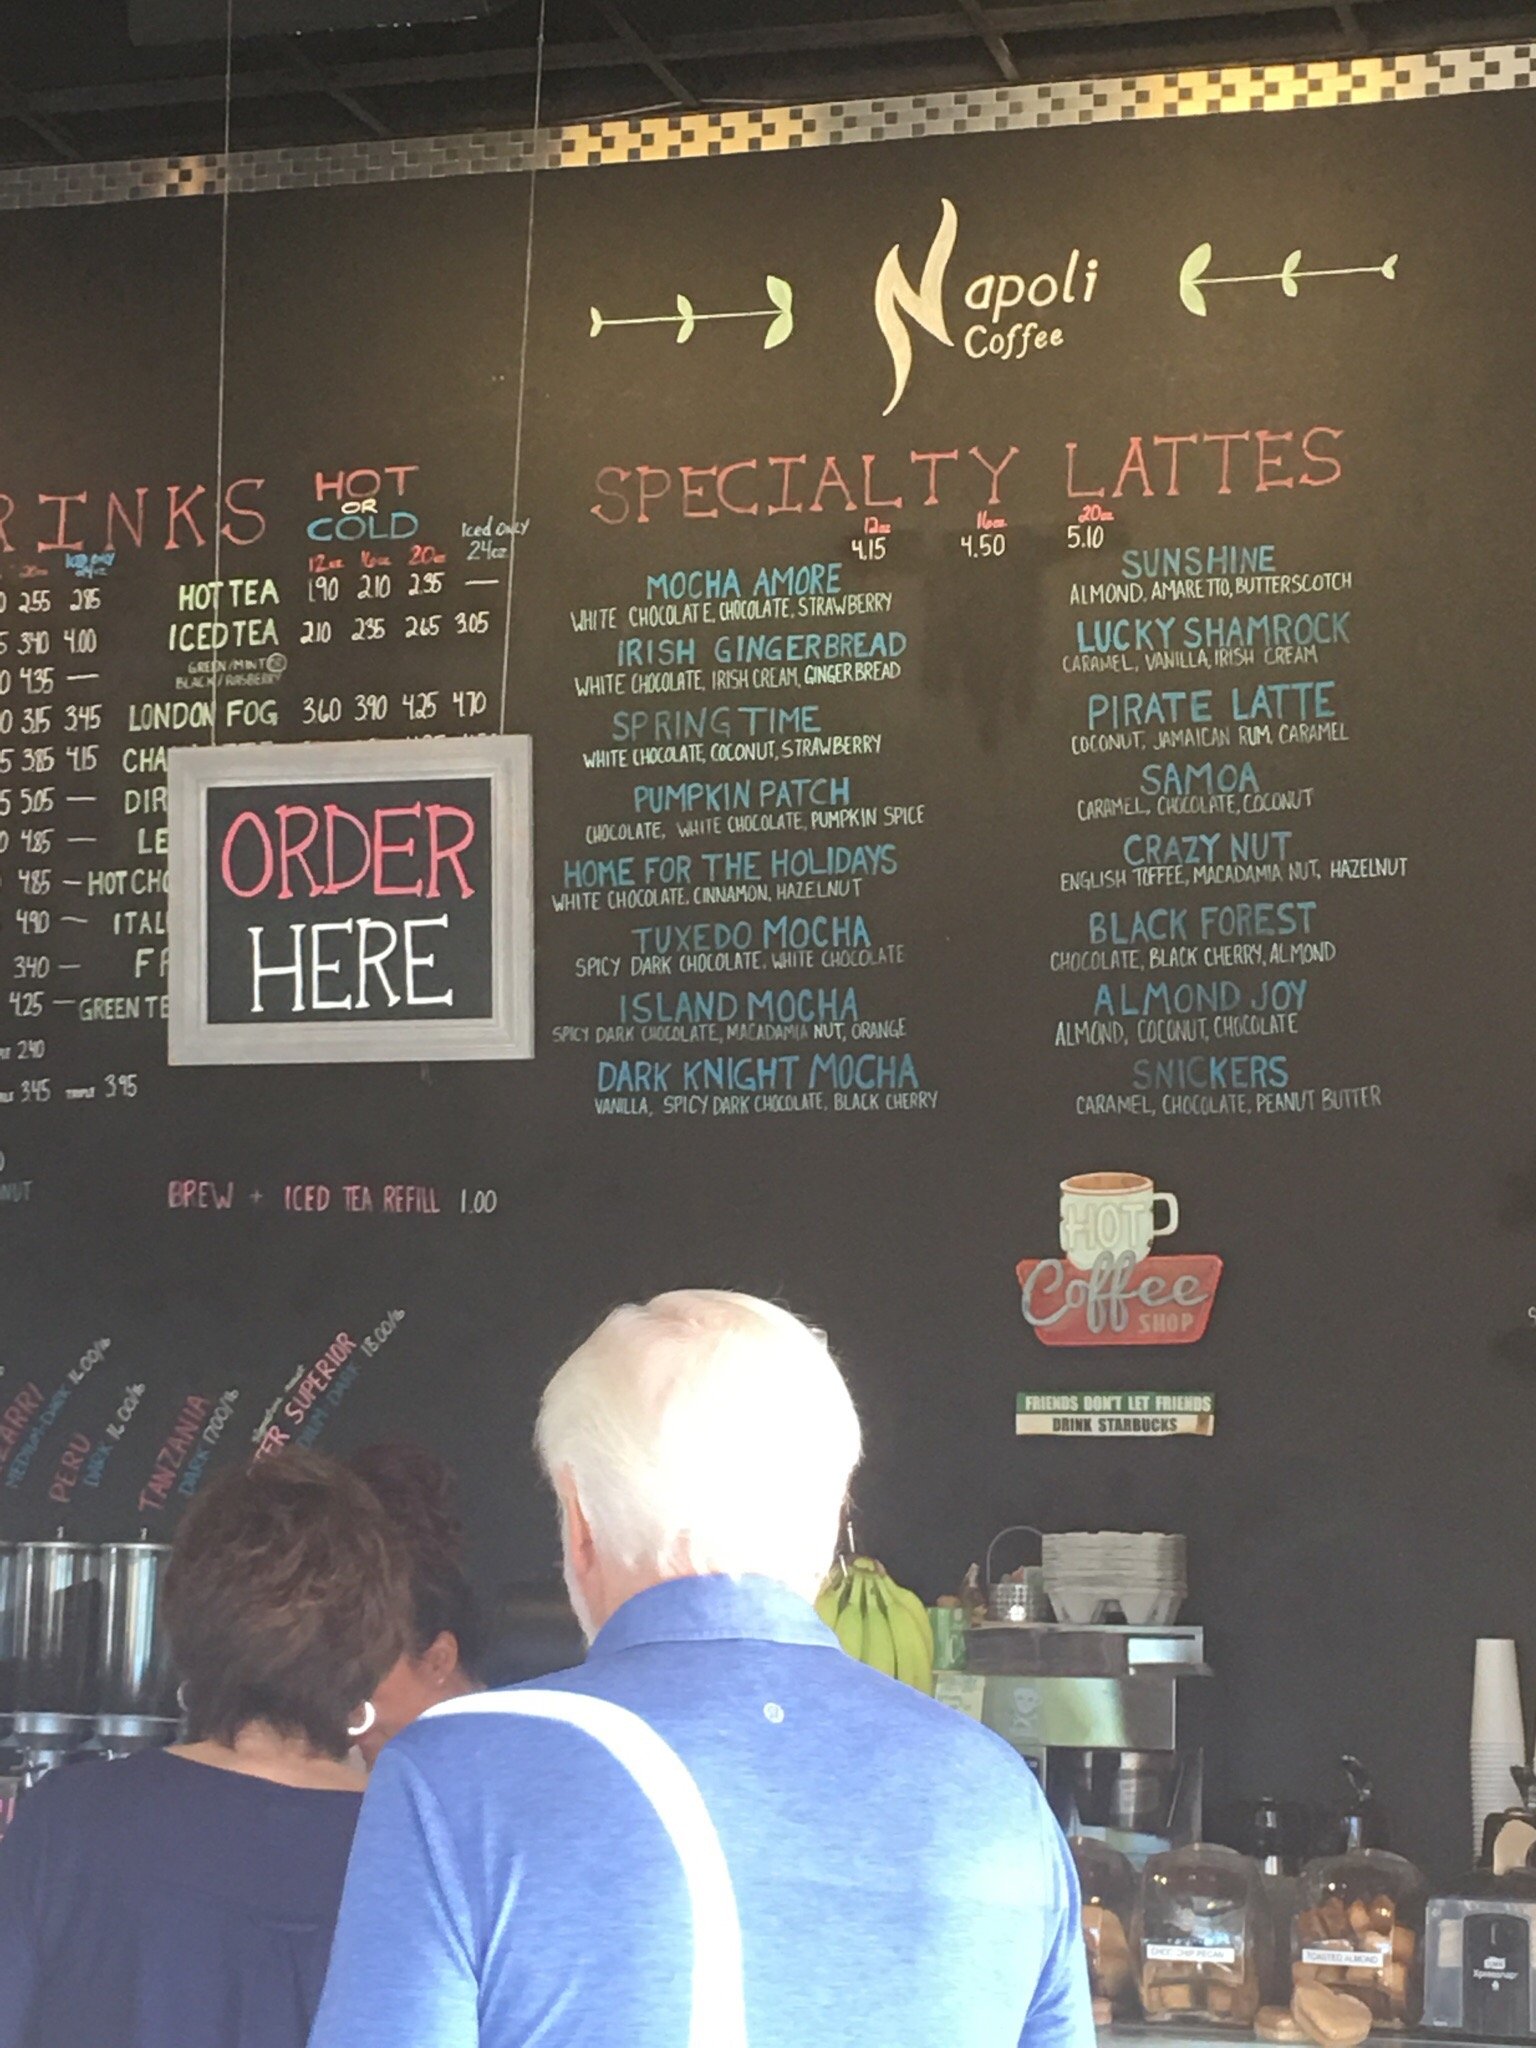 Napoli
Coffee
RINKS
HOT
OR
COLD
12oz 16oz 20oz
Iced only
24oz
2.55 2.85
3.40 4.00
4.35 —
3.15 3.45
3.85 4.15
5.05 —
4.85 —
4.85 —
4.90 —
3.40 —
4.25 —
2.40
3.45 TRIPLE 3.95
HOT TEA 1.90 2.10 2.35 —
ICED TEA 2.10 2.35 2.65 3.05
GREEN/MINT
BLACK/RASBERRY
LONDON FOG 3.60 3.90 4.25 4.70
CHA
DIR
LE
HOT CHO
ITAL
FR
GREEN TE
ORDER
HERE
BREW + ICED TEA REFILL 1.00
SPECIALTY LATTES
12oz 16oz 20oz
4.15 4.50 5.10
MOCHA AMORE
WHITE CHOCOLATE, CHOCOLATE, STRAWBERRY
IRISH GINGERBREAD
WHITE CHOCOLATE, IRISH CREAM, GINGERBREAD
SPRING TIME
WHITE CHOCOLATE, COCONUT, STRAWBERRY
PUMPKIN PATCH
CHOCOLATE, WHITE CHOCOLATE, PUMPKIN SPICE
HOME FOR THE HOLIDAYS
WHITE CHOCOLATE, CINNAMON, HAZELNUT
TUXEDO MOCHA
SPICY DARK CHOCOLATE, WHITE CHOCOLATE
ISLAND MOCHA
SPICY DARK CHOCOLATE, MACADAMIA NUT, ORANGE
DARK KNIGHT MOCHA
VANILLA, SPICY DARK CHOCOLATE, BLACK CHERRY
SUNSHINE
ALMOND, AMARETTO, BUTTERSCOTCH
LUCKY SHAMROCK
CARAMEL, VANILLA, IRISH CREAM
PIRATE LATTE
COCONUT, JAMAICAN RUM, CARAMEL
SAMOA
CARAMEL, CHOCOLATE, COCONUT
CRAZY NUT
ENGLISH TOFFEE, MACADAMIA NUT, HAZELNUT
BLACK FOREST
CHOCOLATE, BLACK CHERRY, ALMOND
ALMOND JOY
ALMOND, COCONUT, CHOCOLATE
SNICKERS
CARAMEL, CHOCOLATE, PEANUT BUTTER
HOT
Coffee
SHOP
FRIENDS DON'T LET FRIENDS
DRINK STARBUCKS
MEDIUM-DARK 16.00/lb
PERU
DARK 16.00/lb
TANZANIA
DARK 17.00/lb
ER SUPERIOR
IUM DARK 18.00/lb
CHOC CHIP PECAN
TOASTED ALMOND
Xpressnap